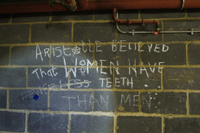 ARISTOTLE BELIEVED
That WOMEN HAVE
LESS TEETH
THAN MEN.